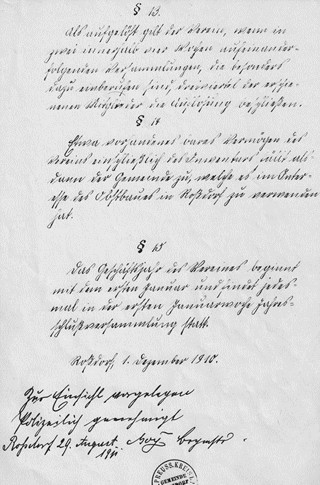 § 13.
Als aufgelöst gilt der Verein, wenn in
zwei innerhalb vier Wochen aufeinander-
folgenden Versammlungen, die besonders
dazu einberufen sind, dreiviertel der erschie-
nenen Mitglieder die Auflösung beschließen.
§ 14
Etwa vorhandenes bares Vermögen des
Vereins einschließlich des Inventars fällt als-
dann der Gemeinde zu, welche es im Inter-
esse des Obstbaues in Roßdorf zu verwenden
hat.
§ 15
Das Geschäftsjahr des Vereines beginnt
mit dem ersten Januar und findet jedes-
mal in der ersten Januarwoche Jahres-
schlußversammlung statt.
Roßdorf, 1. Dezember 1910.
Zur Einsicht vorgelegen
Polizeilich genehmigt
Rossdorf 29. August
1911
PREUSS. KREIS
GEMEINDE